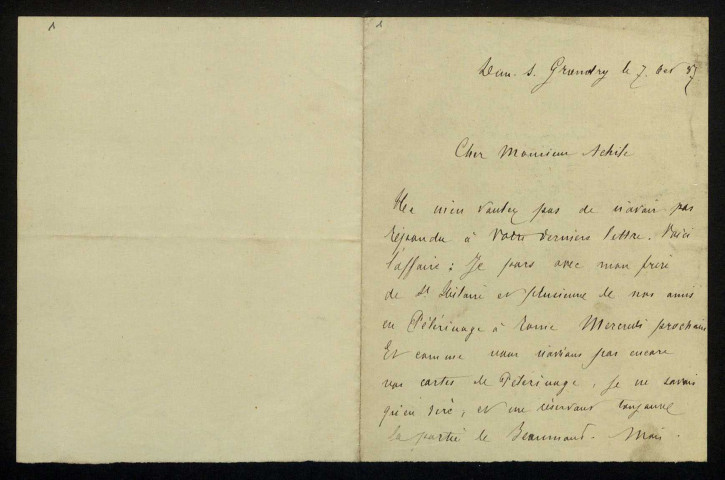 1
1
Dun s. Grandry le 7. Oct 87
Cher Monsieur Achile
Ne m'en voulez pas de n'avoir pas
répondu à votre dernière lettre. Voici
l'affaire : Je pars avec mon frère
de St Hilaire et plusieurs de nos amis
en Pélérinage à Rome Mercredi prochain
Et comme nous n'avions pas encore
nos cartes de Pélérinage, je ne savais
qu'en dire, et me réservais toujours
la partie de Beaumond. Mais.